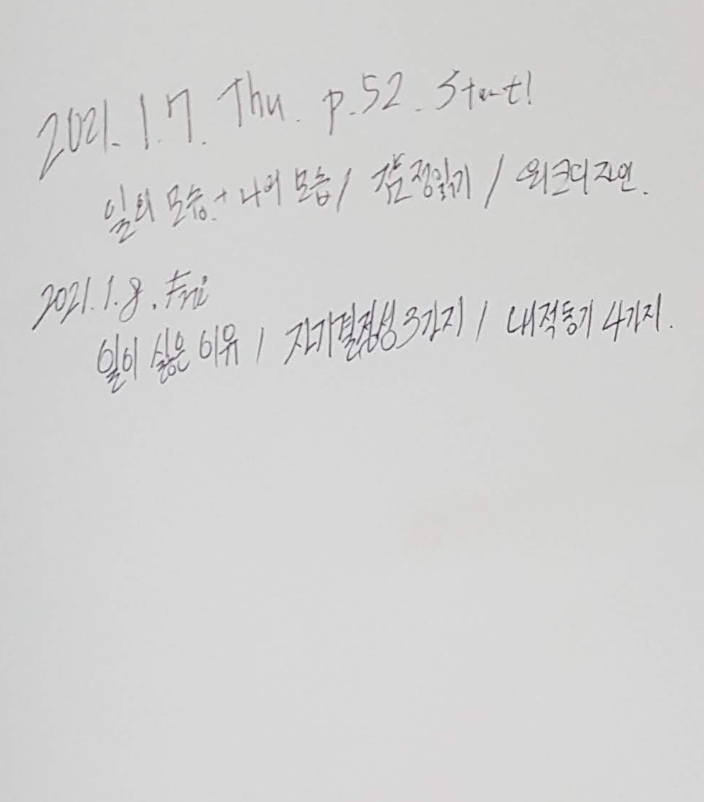 2021. 1. 7. Thu. p.52. Start!
일의 모습 + 나의 모습 / 감정읽기 / 워크디자인.
2021. 1. 8. Fri
일이 싫은 이유 / 자기결정성 3가지 / 내적동기 4가지.